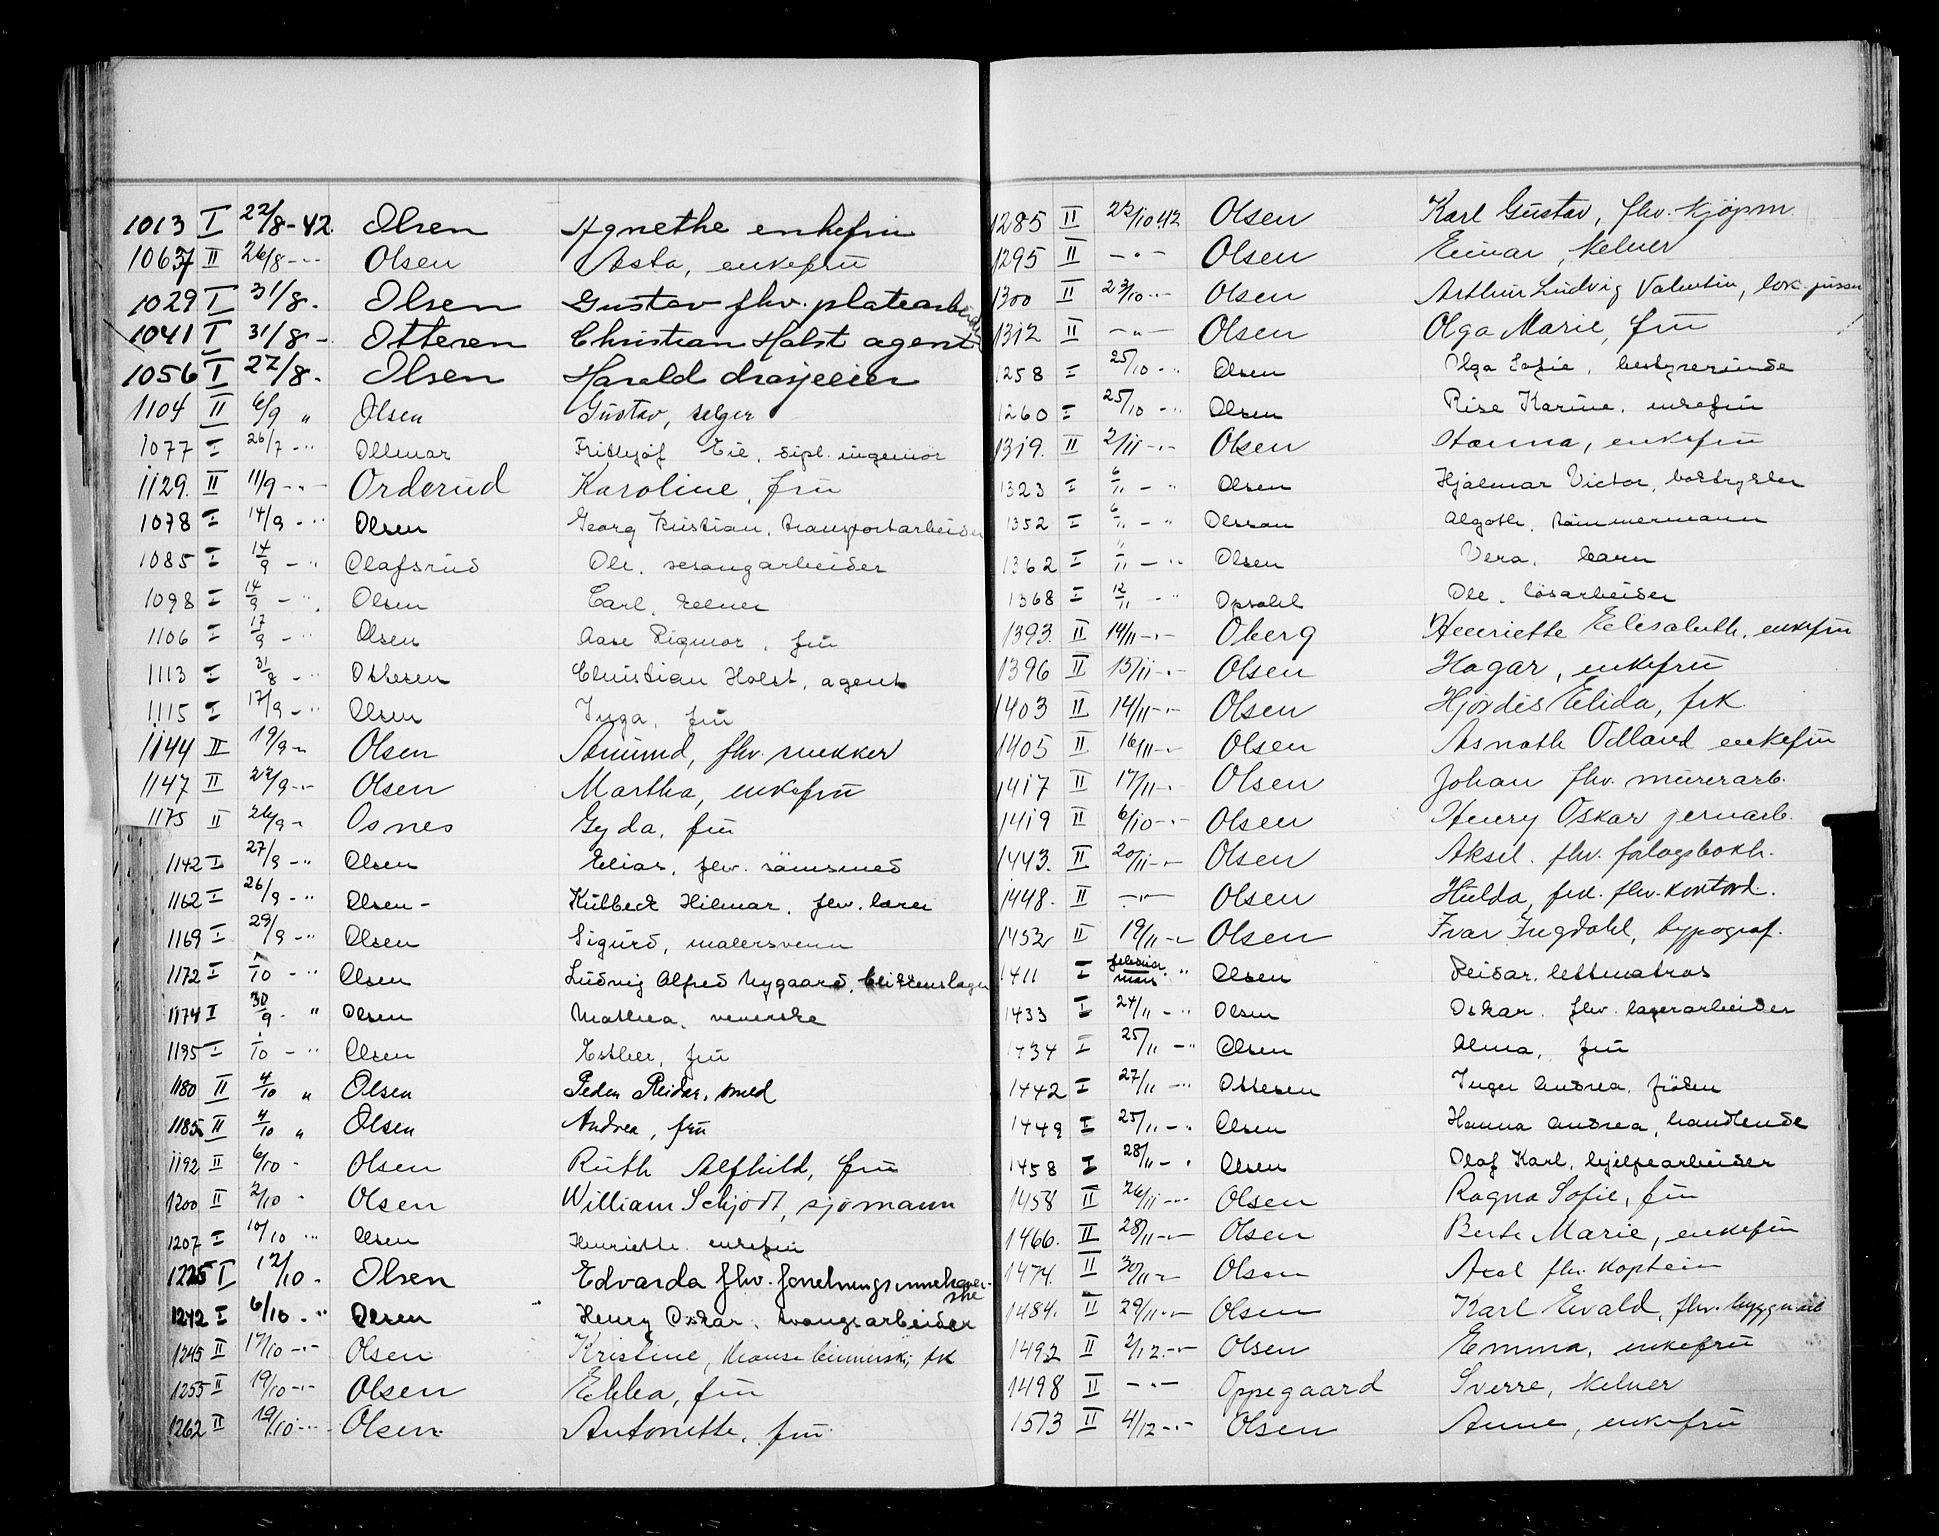 1013 I 22/8-42. Olsen Agnethe enkefru
1063 II 26/8 -"- Olsen Asta, enkefrü
1029 I 31/8. Olsen Gustav fhv. platearbeider
1041 I 31/8 - Ottesen Christian Holst agent
1056 I 27/8. Olsen Harald drosjeeier
1104 II 6/9 " Olsen Güstav, selger
1077 I 26/7 -" Ollmar Fridtjof Eie, dipl. ingeniör
1129. II 11/9 -"- Orderüd Karoline, frü
1078 I 14/9 -" Olsen Georg Kristian, transportarbeider
1085 I 14/9 -" Olafsrüd Ole,
1098 I 14/9 -" Olsen Carl, kelner
1106 I 17/9 -" Olsen Aase Rigmor, frü
1113 I 31/8 -" Ottesen Christian Holst, agent
1115 I 17/9 -" Olsen Inga, frü
1144 II 19/9 -"- Olsen Amünd, fhv. snekker
1147 II 22/9 -"- Olsen Martha, enkefrü
1175 II 26/9 -"- Osnes Gyda, frü
1142 I 27/9 -" Olsen Elias, fhv.
1162 I 26/9 -" Olsen - Külbeck Hilmar, fhv. lærer
1169 I 29/9 -" Olsen Sigürd, malersvenn
1172 I 1/10 -" Olsen Lüdvig Alfred Nygaard, blikkenslager
1174 I 30/9 - " Olsen Mathea, veverske
1195 I 1/10 -" Olsen Esther, frü
1180 II 4/10 " Olsen Peder Reidar, smed
1185 II 4/10 " Olsen Andrea, frü
1192 II 6/10 - Olsen Rüth Alfhild, frü
1200 II 2/10 " Olsen William Schjödt, sjömann
1207 I 10/10 " Olsen Henriette, enkefrü
1225 I 12/10 . Olsen Edvarda fhv. forretningsinnehaver-
ske
1242 I 6/10 -" Olsen Henry Oskar,
1245 II 17/10 -"- Olsen Kristine, frk
1255 II 19/10 -"- Olsen Ebba, frü
1262 II 19/10 -"- Olsen Antonette, frü
1285 II 22/10 42 Olsen Karl Güstav, fhv. kjöpm.
1295 II -"- Olsen Einar, kelner
1300 II 23/10 -"- Olsen Arthur Lüdvig Valentin, lok.
1312 II -"- Olsen Olga Marie, frü
1258 I 25/10 -" Olsen Olga Sofie, bestyrerinde
1260 I 25/10 -" Olsen Karine, enkefrü
1319. II 2/11 -"- Olsen Hanna, enkefrü
1323 I 6/11 - " Olsen Hjalmar Victor, boktrykker
1352 I 6/11 - " Olsson Algoth, tömmermann
1362 I 11/11 -" Olsen Vera, barn
1368 I 12/11 -" Opsahl Ole, lösarbeider
1393. II 14/11 -"- Öberg Henriette Elisabeth, enkefrü
1396 II 13/11 -"- Olsen Hagar, enkefrü
1403 II 14/11 -"- Olsen Hjördis Elida, frk.
1405 II 16/11 -"- Olsen Asnath Odland enkefrü
1417 II 17/11 -"- Olsen Johan fhv. mürerarb.
1419 II 6/10 -"- Olsen Henry Oskar jernarb.
1443. II 20/11 -"- Olsen Aksel. fhv. forlagsbokh.
1448. II -"- Olsen Hülda, frk. fhv. kontord.
1452 II 19/11 -"- Olsen Ivar Ingdahl, typograf.
1411 I februar mars " Olsen Reidar, lettmatros
1433 I 24/11 -" Olsen Oskar, fhv. lagerarbeider
1434 I 25/11 -" Olsen Alma, frü
1442 I 27/11 -" Ottesen Inger Andrea, fröken
1449 I 25/11 -" Olsen Hanna Andrea, handlende
1458 I 28/11 - " Olsen Olaf Karl, hjelpearbeider
1458 II 26/11 -"- Olsen Ragna Sofie, frü
1466. II 28/11 -"- Olsen Berte Marie, enkefrü
1474. II 30/11 -"- Olsen Axel fhv. kaptein
1484. II 29/11 -"- Olsen Karl Evald, fhv.
1492 II 2/12 -"- Olsen Emma, enkefrü
1498 II -"- Oppegaard Sverre, kelner
1513 II 4/12 -"- Olsen Anne, enkefrü